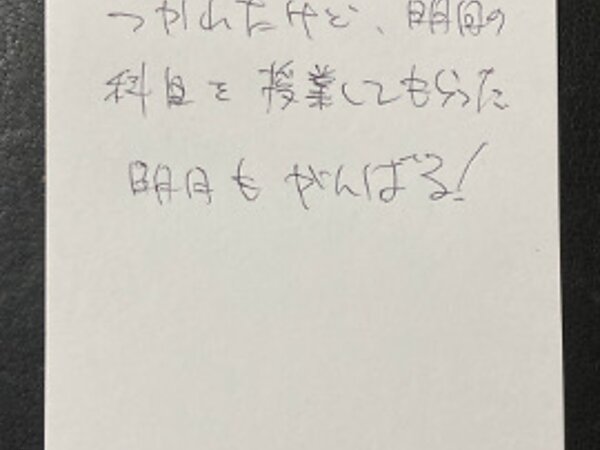 つかれたけど、明日の
科目を授業してもらった
明日もがんばる!